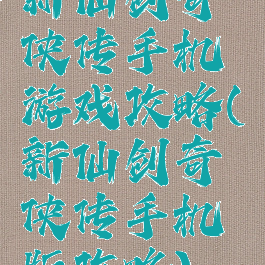 新仙剑奇
侠传手机
游戏攻略(
新仙剑奇
侠传手机
版攻略)